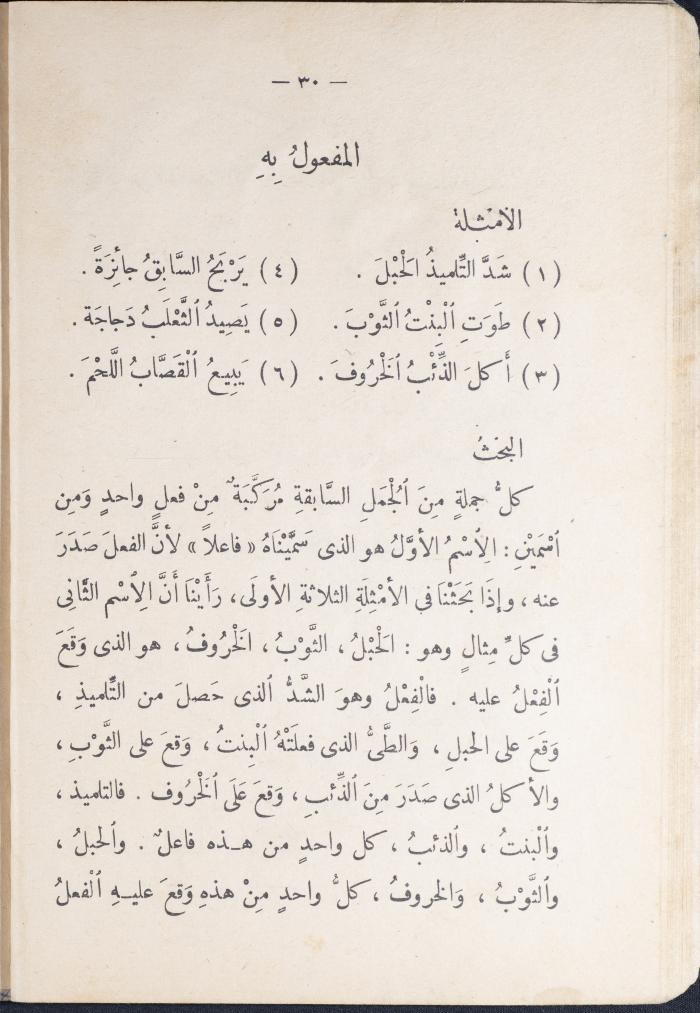 — ٣٠ —
المفعولُ بِهِ
الأمْثِلة
(١) شَدَّ التِّلميذُ الحَبْلَ . (٤) يَرْبَحُ السَّابِقُ جائِزَةً .
(٢) طَوَتِ ٱلْبِنْتُ ٱلثَّوْبَ . (٥) يَصِيدُ ٱلثَّعْلَبُ دَجاجَة .
(٣) أَكلَ الذِّئْبُ ٱلْخَرُوفَ . (٦) يَبِيعُ ٱلْقَصَّابُ اللَّحْمَ .
البَحْثُ
كلُّ جملةٍ مِنَ ٱلْجُمَلِ السَّابقةِ مُرَكَّبَةٌ مِنْ فعلٍ واحدٍ وَمِن
ٱسْمَيْنِ : الِٱسْمُ الأوَّلُ هو الذى سَمَّيْنَاهُ « فاعلاً » لأنَّ الفعلَ صَدَرَ
عنه ، وإذَا بَحَثْنَا في الأمْثِلَةِ الثلاثةِ الأولَى، رَأَيْنَا أَنَّ الِٱسْم الثَّانِى
فى كلِّ مِثالٍ وهو : الحَبْلُ ، الثَّوْبُ ، الخَرُوفُ ، هو الذى وَقَعَ
ٱلْفِعْلُ عليه . فالْفِعْلُ وهوَ الشَّدُّ ٱلذى حَصلَ من التِّلميذِ ،
وَقَعَ على الحبلِ ، وَالطَّىُّ الذى فعلَتْهُ ٱلْبِنتُ ، وَقعَ على الثَّوْبِ ،
والأكلُ الذى صَدَرَ مِنَ ٱلذِّئبِ ، وَقعَ عَلَى ٱلْخَرُوف . فالتلميذ ،
وٱلْبنتُ ، وٱلذئبُ ، كل واحدٍ من هـذه فاعلٌ . وٱلحبلُ ،
وٱلثَّوْبُ ، وَالخروفُ ، كلُّ واحدٍ مِنْ هذهِ وَقعَ عليـهِ ٱلْفعلُ